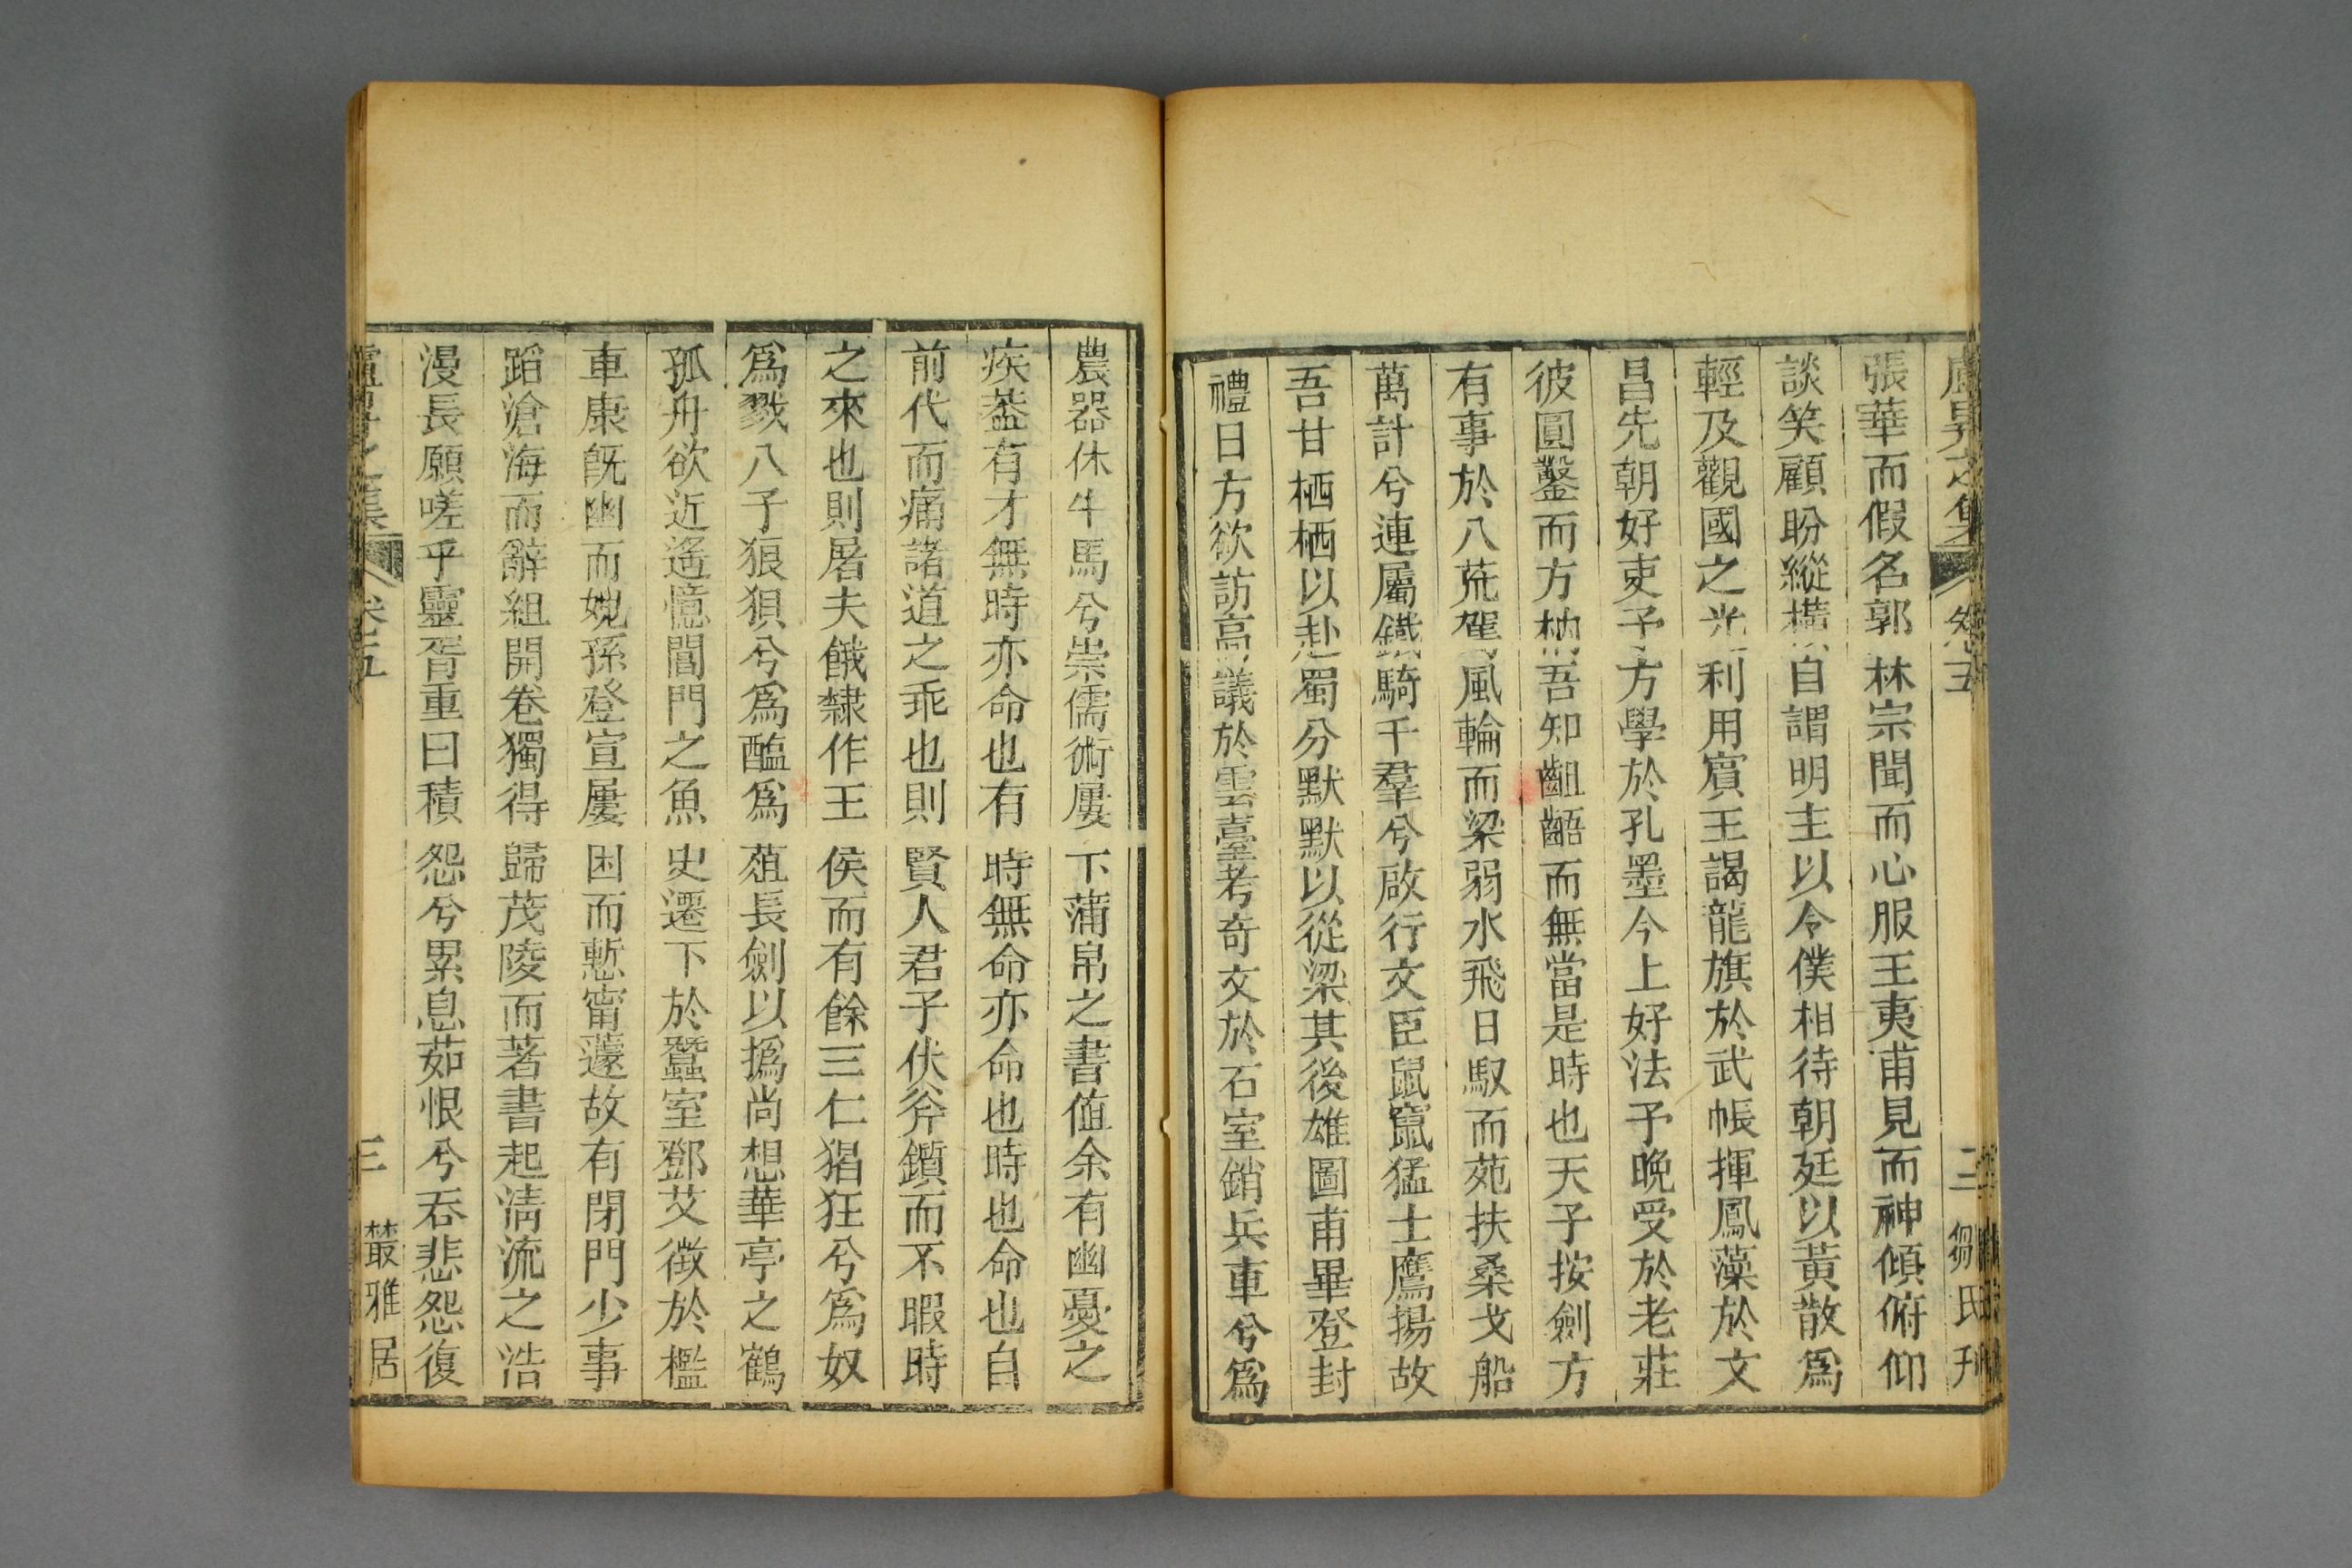 盧昇之集 卷五 二 芻氏刋
張華而假名郭林宗聞而心服王夷甫見而神傾俯仰
談笑顧盼縱橫自謂明主以令僕相待朝廷以黃散爲
輕及觀國之光利用賓王謁龍旗於武帳揮鳳藻於文
昌先朝好吏予方學於孔墨今上好法予晚受於老莊
彼圓鑿而方枘吾知齟齬而無當是時也天子按劍方
有事於八荒駕風輪而梁弱水飛日馭而苑扶桑戈船
萬計兮連屬鐵騎千羣兮啟行文臣鼠竄猛士鷹揚故
吾甘栖栖以赴蜀分默默以從梁其後雄圖甫畢登封
禮日方欲訪高議於雲臺考奇文於石室銷兵車兮爲
農器休牛馬兮崇儒術屢下蒲帛之書値余有幽憂之
疾葢有才無時亦命也有時無命亦命也時也命也自
前代而痛諸道之乖也則賢人君子伏斧鑕而不暇時
之來也則屠夫餓隸作王侯而有餘三仁猖狂兮爲奴
爲戮八子狼狽兮爲醢爲葅長劍以撝尚想華亭之鶴
孤舟欲近遙憶閶門之魚史遷下於蠶室鄧艾徴於檻
車康旣幽而媿孫登宣屢困而慙甯蘧故有閉門少事
蹈滄海而辭組開卷獨得歸茂陵而著書起淸流之浩
漫長願嗟乎靈胥重曰積怨兮累息茹恨兮吞悲怨復
盧昇之集 卷五 三 叢雅居